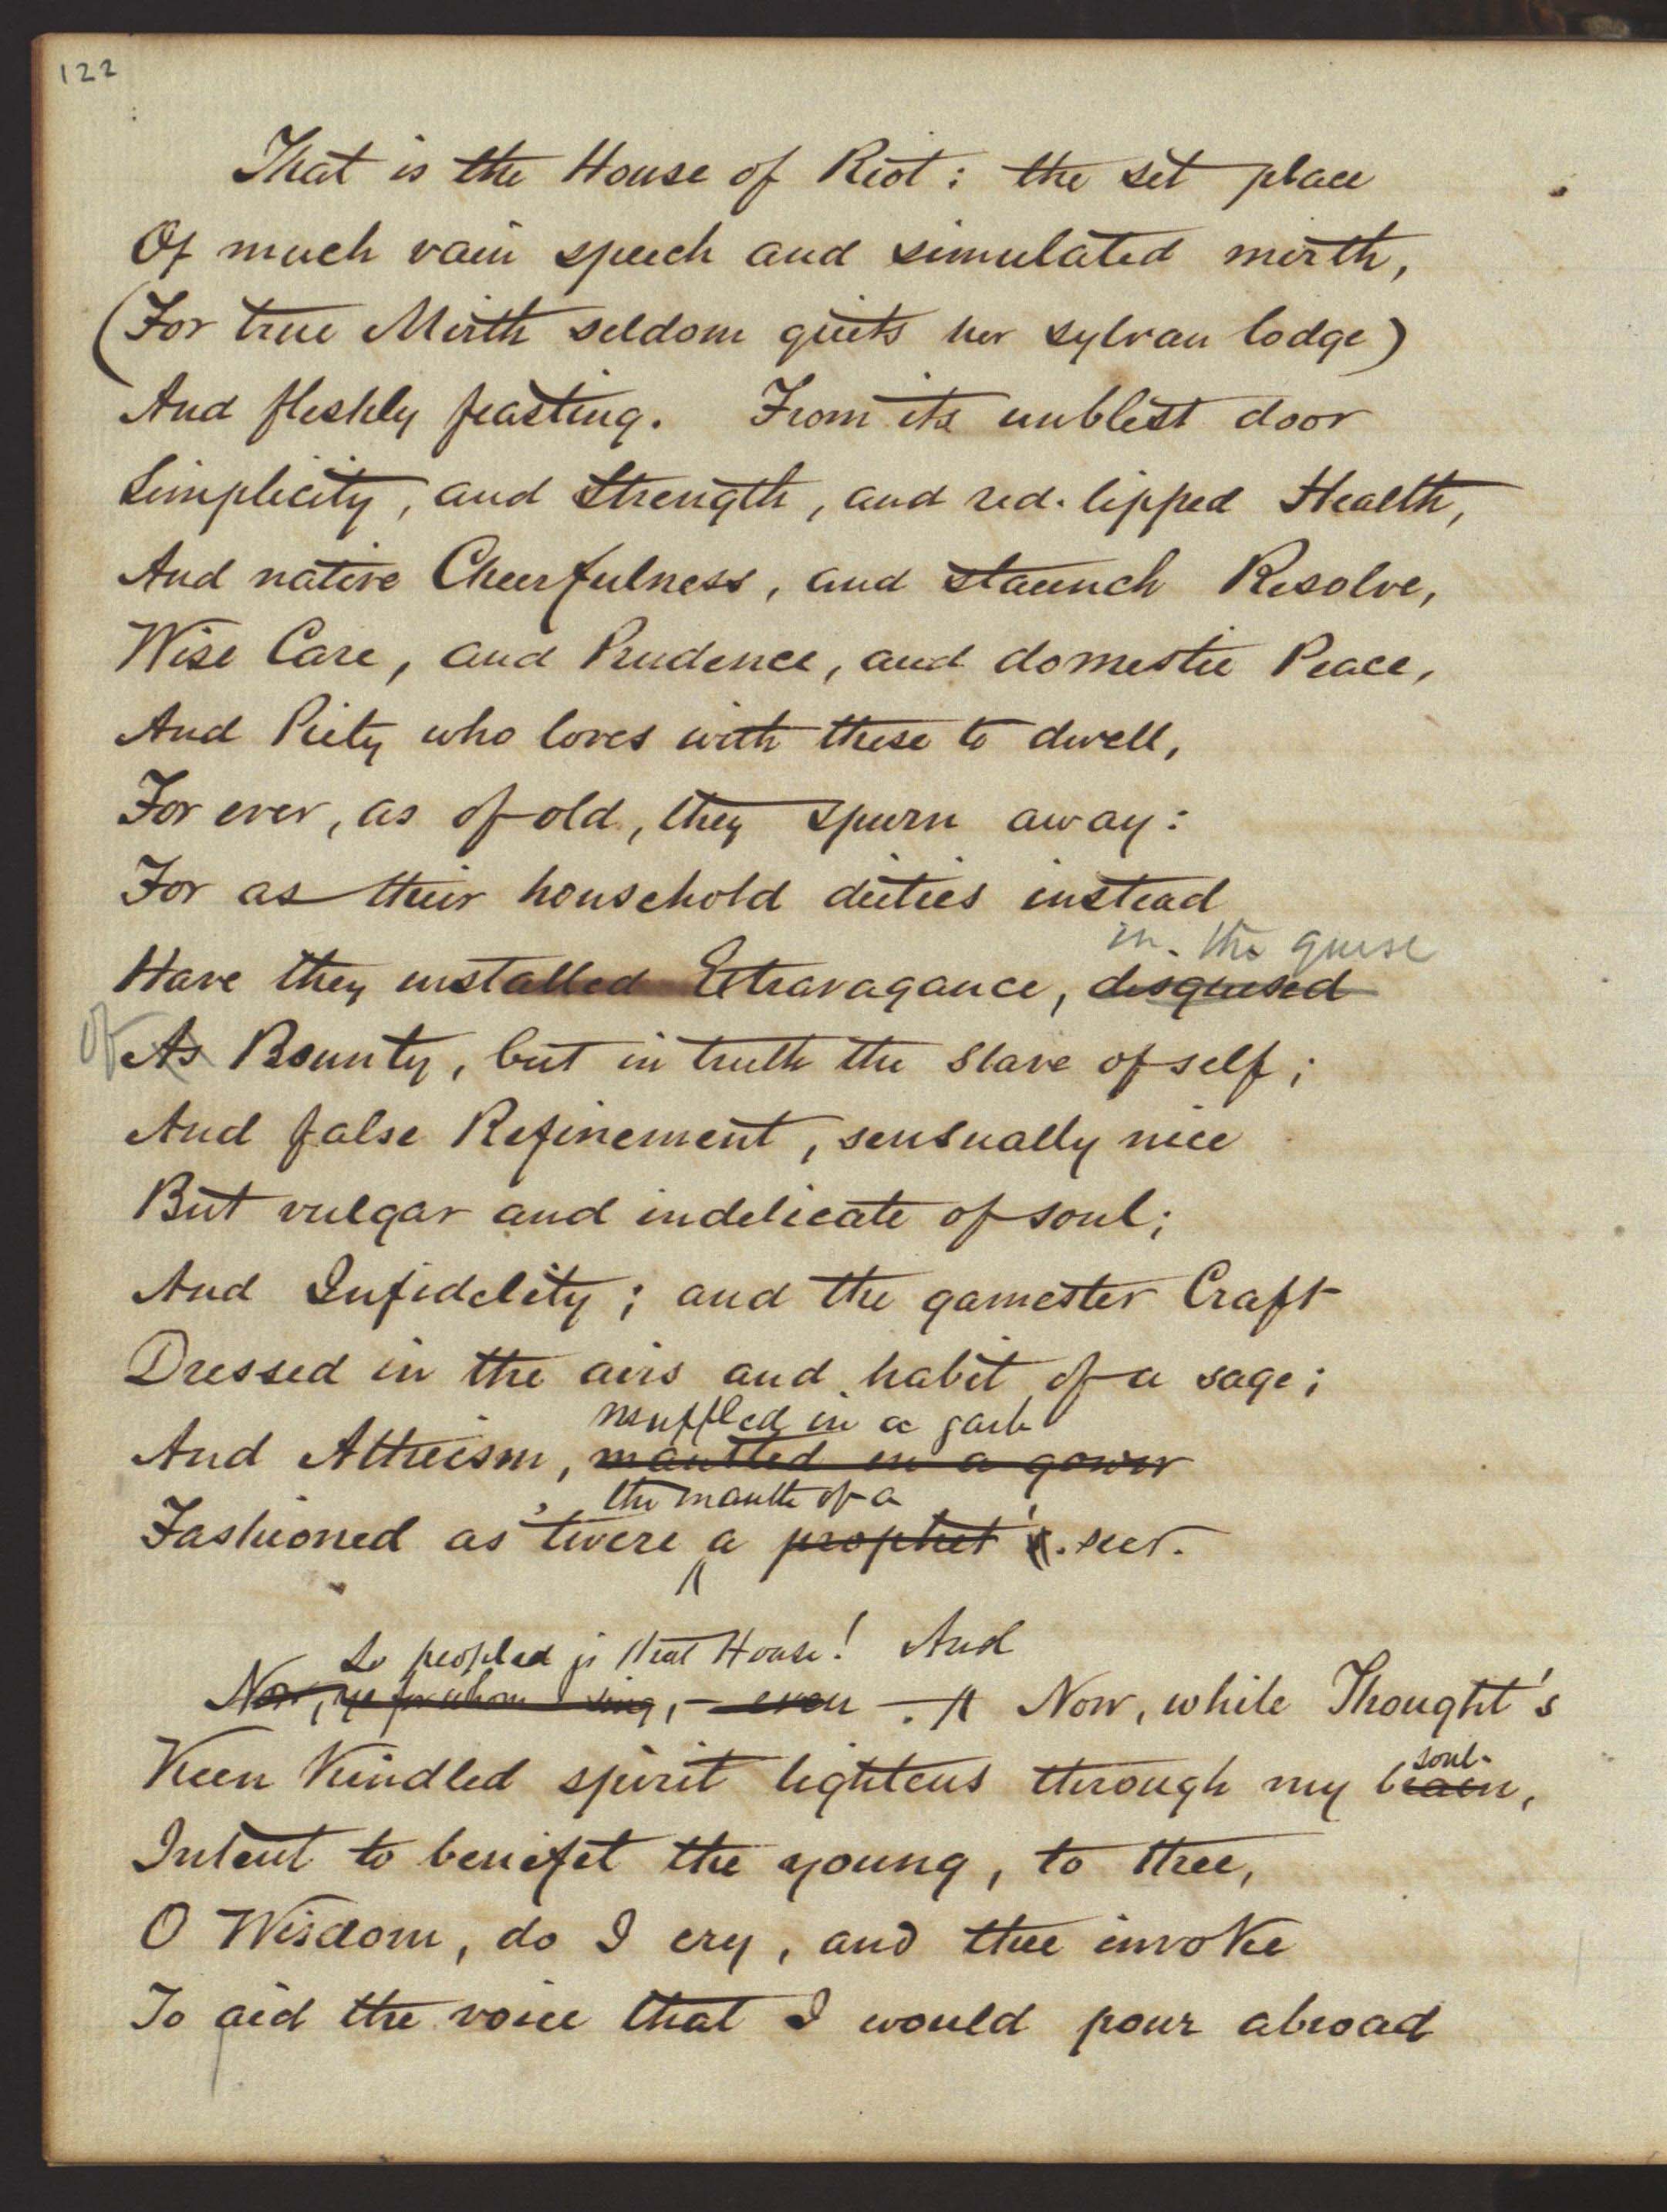 122
That is the House of Riot: the set place
Of much vain speech and simulated mirth,
(For true Mirth seldom quits her sylvan lodge)
And fleshly feasting. From its unblest door
Simplicity, and Strength, and red-lipped Health,
And native Cheerfulness, and staunch Resolve,
Wise Care, and Prudence, and domestic Peace,
And Piety who loves with these to dwell,
For ever, as of old, they spurn away:
For as their household dieties instead
in the guise
Have they installed Extravagance, disguised
of As Bounty, but in truth the slave of self;
And false Refinement, sensually nice
But vulgar and indelicate of soul;
And Infidelity; and the gamester Craft
Dressed in the airs and habit of a sage;
muffled in a garb
And Atheism, mantled in a gown
the mantle of a
Fashioned as 'twere a prophet's. seer.
So peopled is that House! And
Now, ye for whom I sing, – even – Now, while Thought's
soul.
Keen Kindled spirit lightens through my brain,
Intent to benifet the young, to thee,
O Wisdom, do I cry, and thee invoke
To aid the voice that I would pour abroad